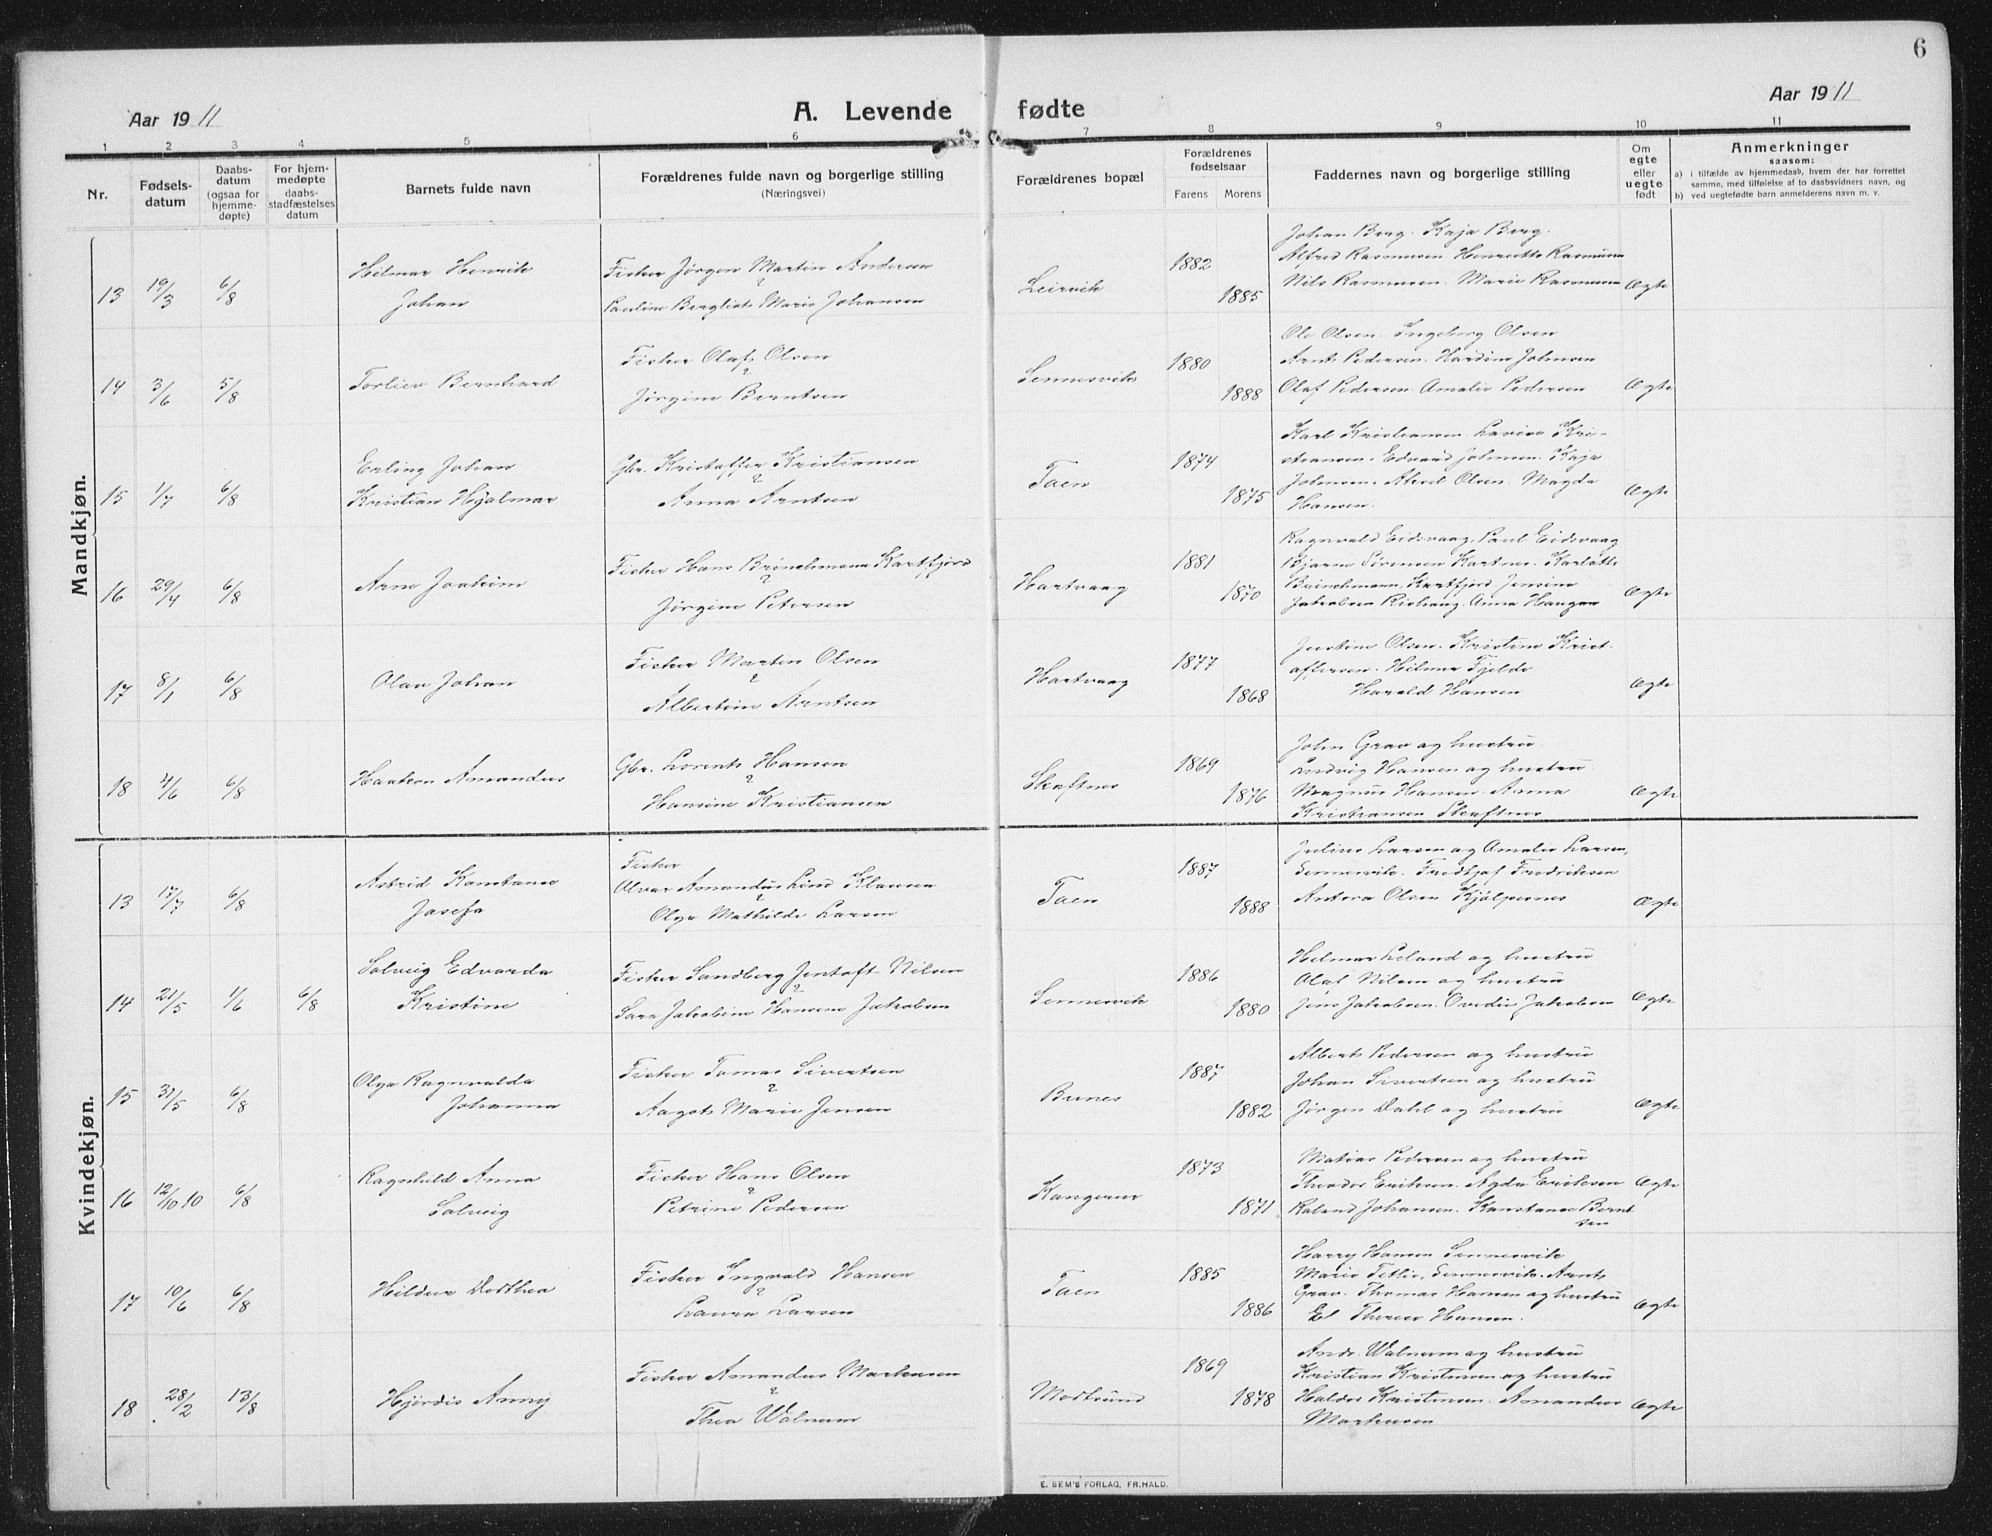 6
Aar 1911
A. Levende fødte
Aar 1911
1 2 3 4 5 6 7 8 9 10 11
Nr.
Fødsels-
datum
Daabs-
datum
(ogsaa for
hjemme-
døpte)
For hjem-
medøpte
daabs-
stadfæstelses
datum
Barnets fulde navn
Forældrenes fulde navn og borgerlige stilling
(Næringsvei)
Forældrenes bopæl
Forældrenes
fødselsaar
Farens Morens
Faddernes navn og borgerlige stilling
Om
egte
eller
uegte
født
Anmerkninger
saasom:
a) i tilfælde av hjemmedaab, hvem der har forrettet
samme, med tilføielse af to daabsvidners navn, og
b) ved uegtefødte barn anmelderens navn m. v.
Mandkjøn.
13 19/3 6/8
Hilmar Henrik
Johan
Fisker Jørgen Martin Andersen
Pauline Bergliot Marie Johansen
Leirvik
1882
1885
Johan Berg. Kaja Berg.
Alfred Rasmussen Henriette Rasmussen
Nils Rasmussen. Marie Rasmussen
Ægte
14 3/6 5/8
Torleiv Bernhard
Fisker Olaf Olsen
Jørgine Berntsen
Sennesvik
1880
1888
Ole Olsen. Ingeborg Olsen
Arnt Pedersen. Hardine Johnsen
Olaf Pedersen. Amalie Pedersen
Ægte
15 1/7 6/8
Erling Johan
Kristian Hjalmar
Gbr. Kristoffer Kristiansen
Anna Arntsen
Taen
1874
1875
Karl Kristiansen. Lavise Kri-
stiansen. Edvard Johnsen. Kaja
Johnsen. Aksel Olsen. Magda
Hansen.
Ægte
16 29/4 6/8
Arne Joakim
Fisker Hans Brinchmann Kartfjord
Jørgine Petersen
Hartvaag
1881
1870
Ragnvald Eidsvaag, Paul Eidsvaag
Bjarne Sørensen Kartnes. Karlotte
Brinchmann, Kartfjord, Jensine
Jakobsen Anna Haugan
Ægte
17 8/1 6/8
Olav Johan
Fisker Martin Olsen
Albertine Arntsen
Hartvaag
1877
1868
Justine Olsen. Kristine Krist-
offersen. Hilmar Fjelde
Harald Hansen
Ægte
18 4/6 6/8
Haakon Amandus
Gbr. Lorents Hansen
Hansine Kristiansen
Skaftnes
1869
1876
John Grav og hustru.
Ludvig Hansen og hustru
Magnus Hansen. Anna
Kristiansen Skaftnes
Ægte
Kvindekjøn.
13 17/7 6/8
Astrid Konstanse
Josefa
Fisker
Alvar Amandus Lind Klausen
Olga Mathilde Larsen
Taen
1887
1888
Julius Larsen og Amalie Larsen,
Sennesvik. Fredtjof Fredriksen
Antora Olsen Kjølpesnes
Ægte
14 21/5 1/6 6/8
Solveig Edvarda
Kristine
Fisker Sandberg Jentoft Nilsen
Sara Jakobine Hansine Jakobsen
Sennesvik
1886
1880
Helmar Leland og hustru
Olaf Nilsen og hustru
Jens Jakobsen. Ovedie Jakobsen
Ægte
15 31/5 6/8
Olga Ragnvalda
Johanna
Fisker Tomas Sivertsen
Aagot Marie Jensen
Bunes
1887
1882
Albert Pedersen og hustru
Johan Sivertsen og hustru
Jørgen Dahl og hustru
Ægte
16 12/10 10 6/8
Ragnhild Anna
Solveig
Fisker Hans Olsen
Petrine Pedersen
Kangerur
1873
1871
Matias Pedersen og hustru
Theodor Eriksen. Agda Eriksen
Roland Johansen. Konstanse Bernt
sen
Ægte
17 10/6 6/8
Hildur Dorthea
Fisker Ingvald Hansen
Laura Larsen
Taen
1885
1886
Harry Hansen Sennesvik
Marie Tetlie, Sennesvik. Arnt
Grav. Thomas Hansen og hustru
El. Therese Hansen.
Ægte
18 28/2 13/8
Hjørdis Anny
Fisker Amandus Markussen
Thea Walnum
Mortsund
1869
1878
Andr. Walnum og hustru
Kristian Kristensen og hustru
Haldor Kristensen. Amandus
Markussen
Ægte
E. SEM'S FORLAG, FR.HALD.